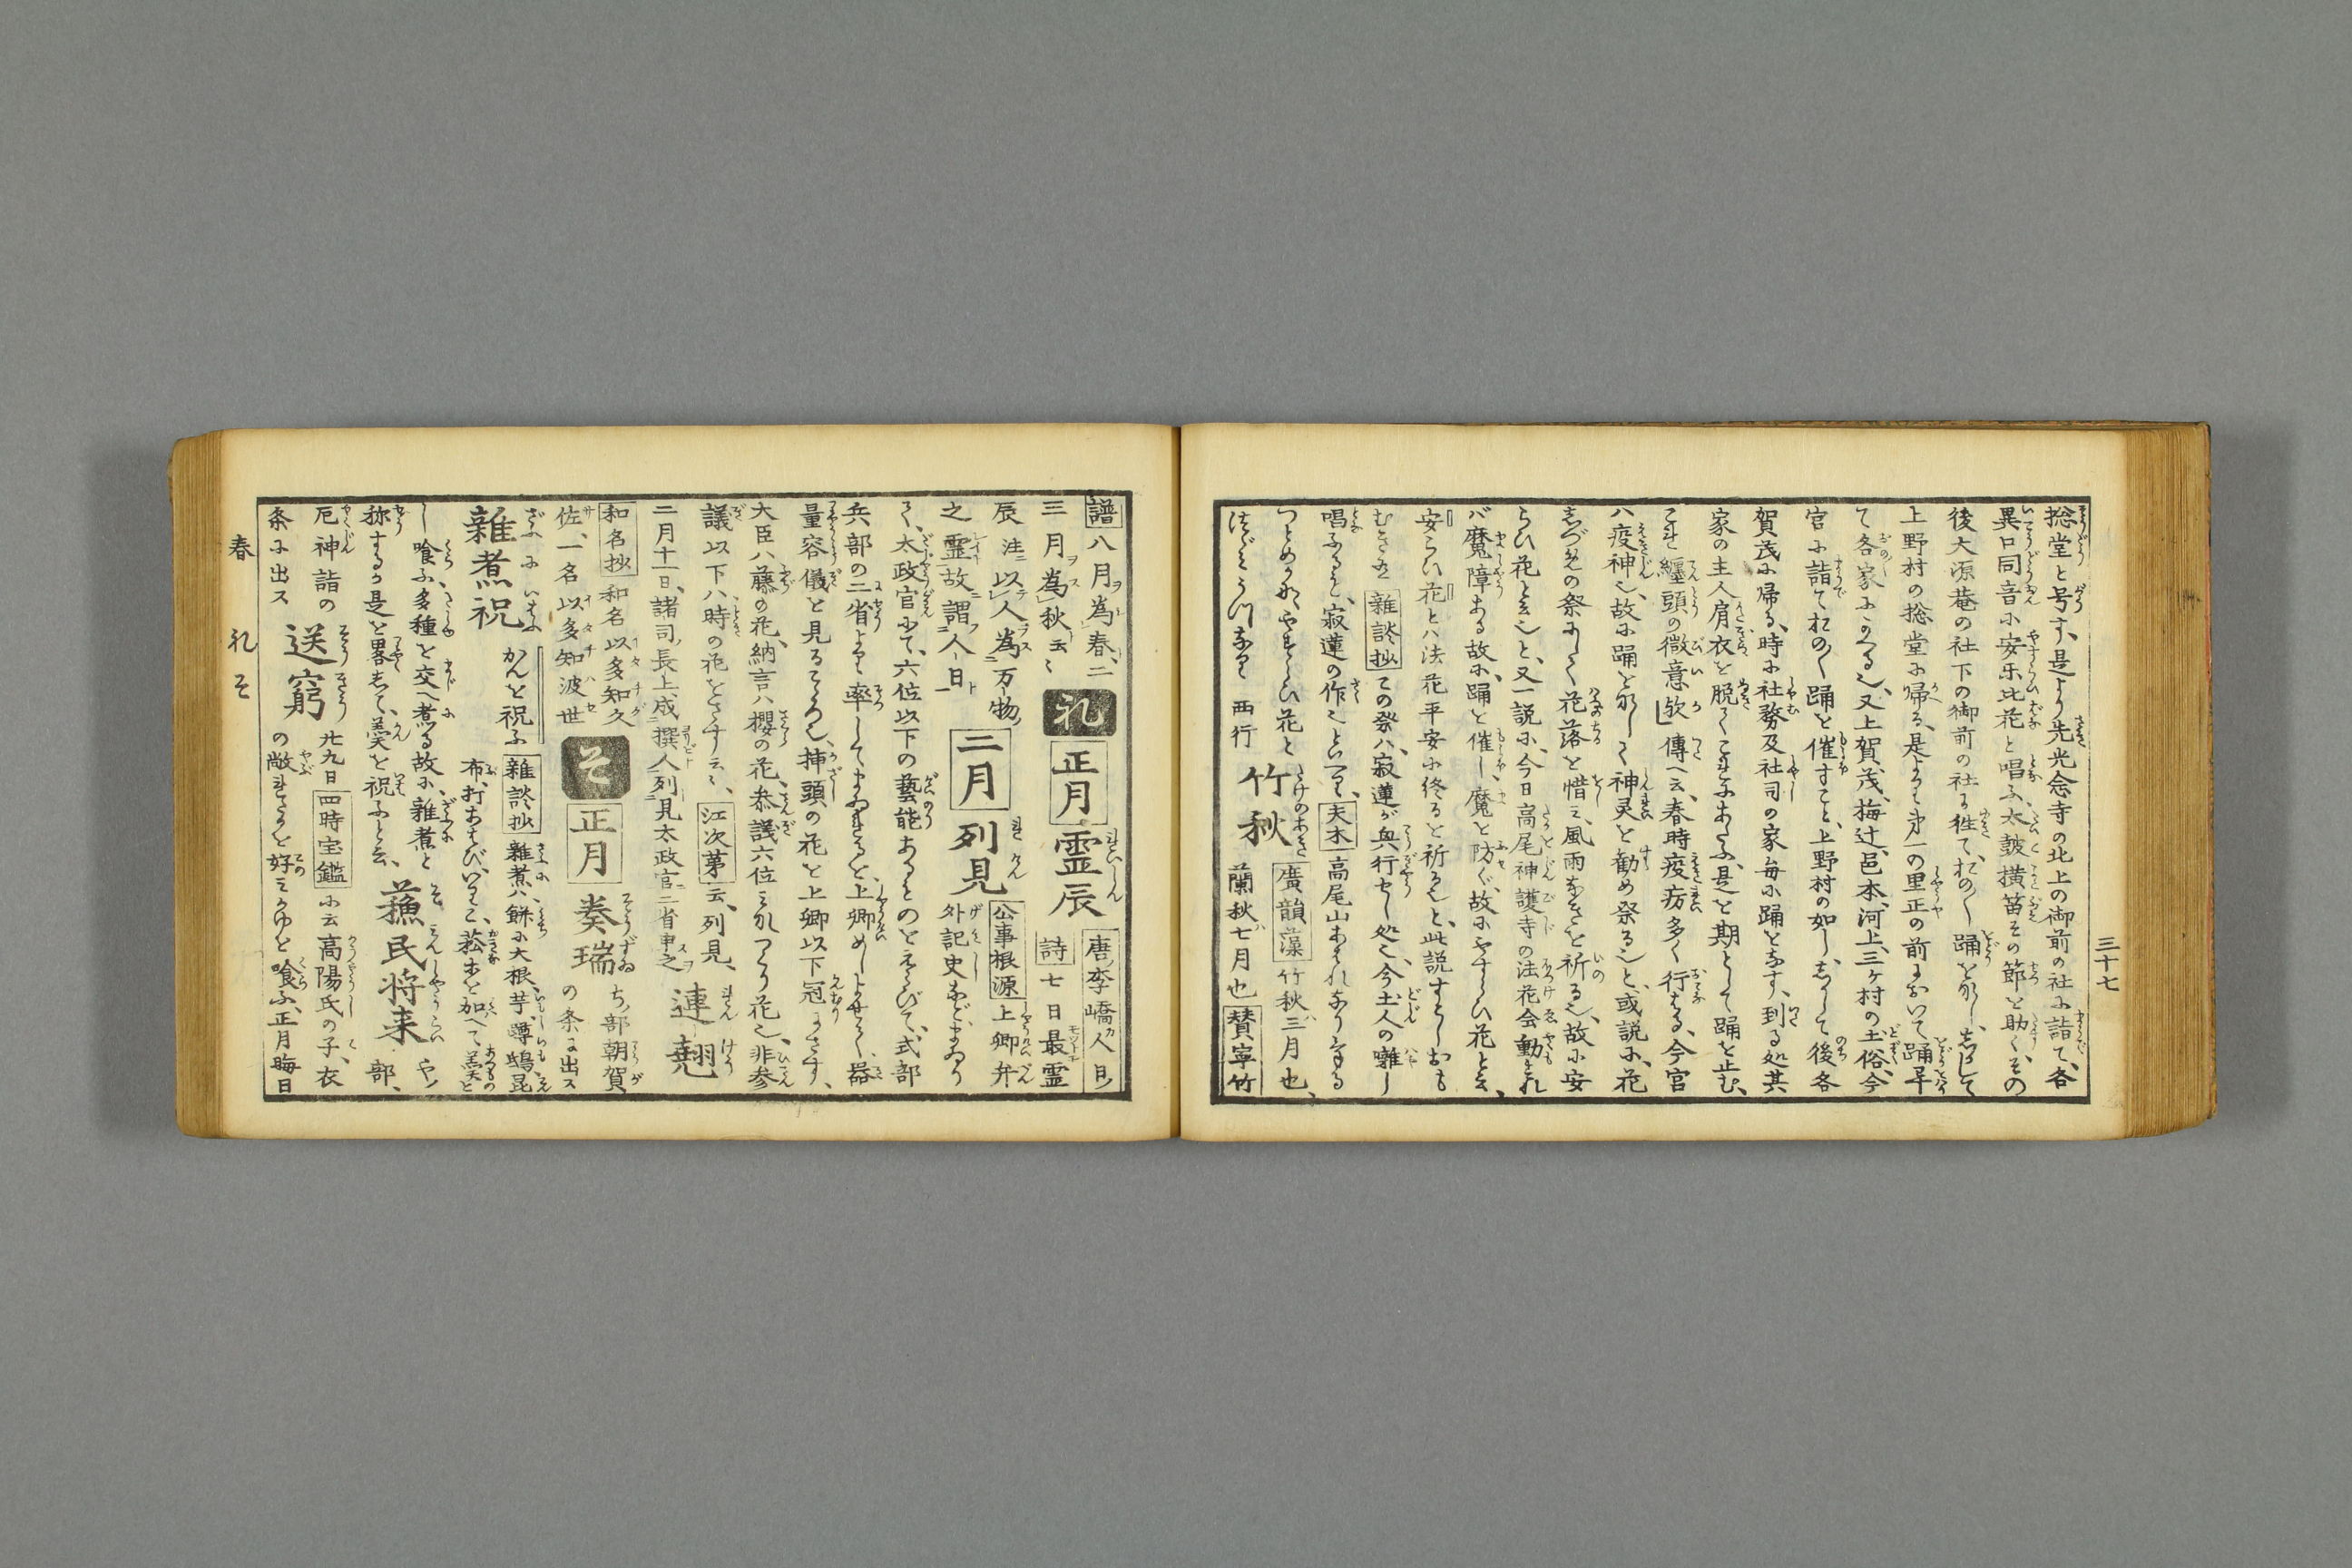 三十七
惣堂と号す、是より先光念寺の北上の御前の社に詣て、各
異口同音に安楽比花と唱ふ、太鼓横笛その節を助く、その
後大源菴の社下の御前の社に徃て、おの〱踊を
上野村の惣堂に帰る、是より第一の里正の前において踊
て各家にかへる也、又上賀茂、梅辻、邑本、河上、三ケ村の土俗、今
宮に詣ておの〱踊を催すこと、上野村の如し、して後各
賀茂に帰る、時に社務及社司の家毎に踊をなす、到る処其
家の主人肩衣を脱てこれにあたふ、是を期として踊を止む、
これ纏頭の微意歟」傳へ云、春時疫疠多く行はる、今宮
ハ疫神也、故に踊をなして神灵を勧め祭ると、或説に、花
しづめの祭にして花落を惜ミ、風雨なきを祈る也、故に安
らひ花と云と、又一説に、今日高尾神護寺の法花会動もすれ
バ魔障ある故に、踊を催し、魔を防ぐ、故にやすらひ花と云、
安らひ花とハ法花平安に終るを祈ると、此説すこしおも
むきあり 雑談抄 この祭ハ、寂蓮が興行せし処也、今土人の囃し
唱ふるも、寂蓮の作也といへり、夫木 高尾山あはれなりける
つとめかなやすらひ花と
つゞみうつなり 西行 竹秋 廣韻藻 竹秋ハ三月也、
蘭秋ハ七月也 賛寧竹
譜 八月為春、二
三月為秋云〻 礼 正月 霊辰 唐李嶠人日ノ
詩 七日最霊
辰 注ニ以人為万物ノ
之霊故謂人日ト 二月 列見 公事根源 上卿弁
外記史などまゐり
て、太政官にて、六位以下の藝能あるものをえらびて、式部
兵部の二省より率してまゐれるを、上卿めしよせて、器
量容儀を見るこころ也、挿頭の花を上卿以下冠にさす、
大臣ハ藤の花、納言ハ櫻の花、参議六位ミなつくり花也、非参
議以下ハ時の花をさす云〻、江次第 云、列見、
二月十一日、諸司長上成撰人列見太政官二省申之 連翹
和名抄 和名以多知久
佐、一名以多知波世 そ 正月 奏瑞 ち部朝賀
の条に出ス
ざふにいはふ
雑煮祝 かんを祝ふ 雑談抄 雑煮ハ、餅に大根、芋、蹲鴟、昆
布、打あはび、いりこ、菘等を加へて羹と
し喰ふ、多種を交へ煮る故に、雑煮と
称するか是を畧して、羹を祝ふと云、 蘓民将来 や部、
厄神詣の
条に出ス 送窮 廿九日 四時宝鑑 に云高陽氏の子、衣
の敝れたるを好ミかゆを喰ふ、正月晦日
春 礼 そ